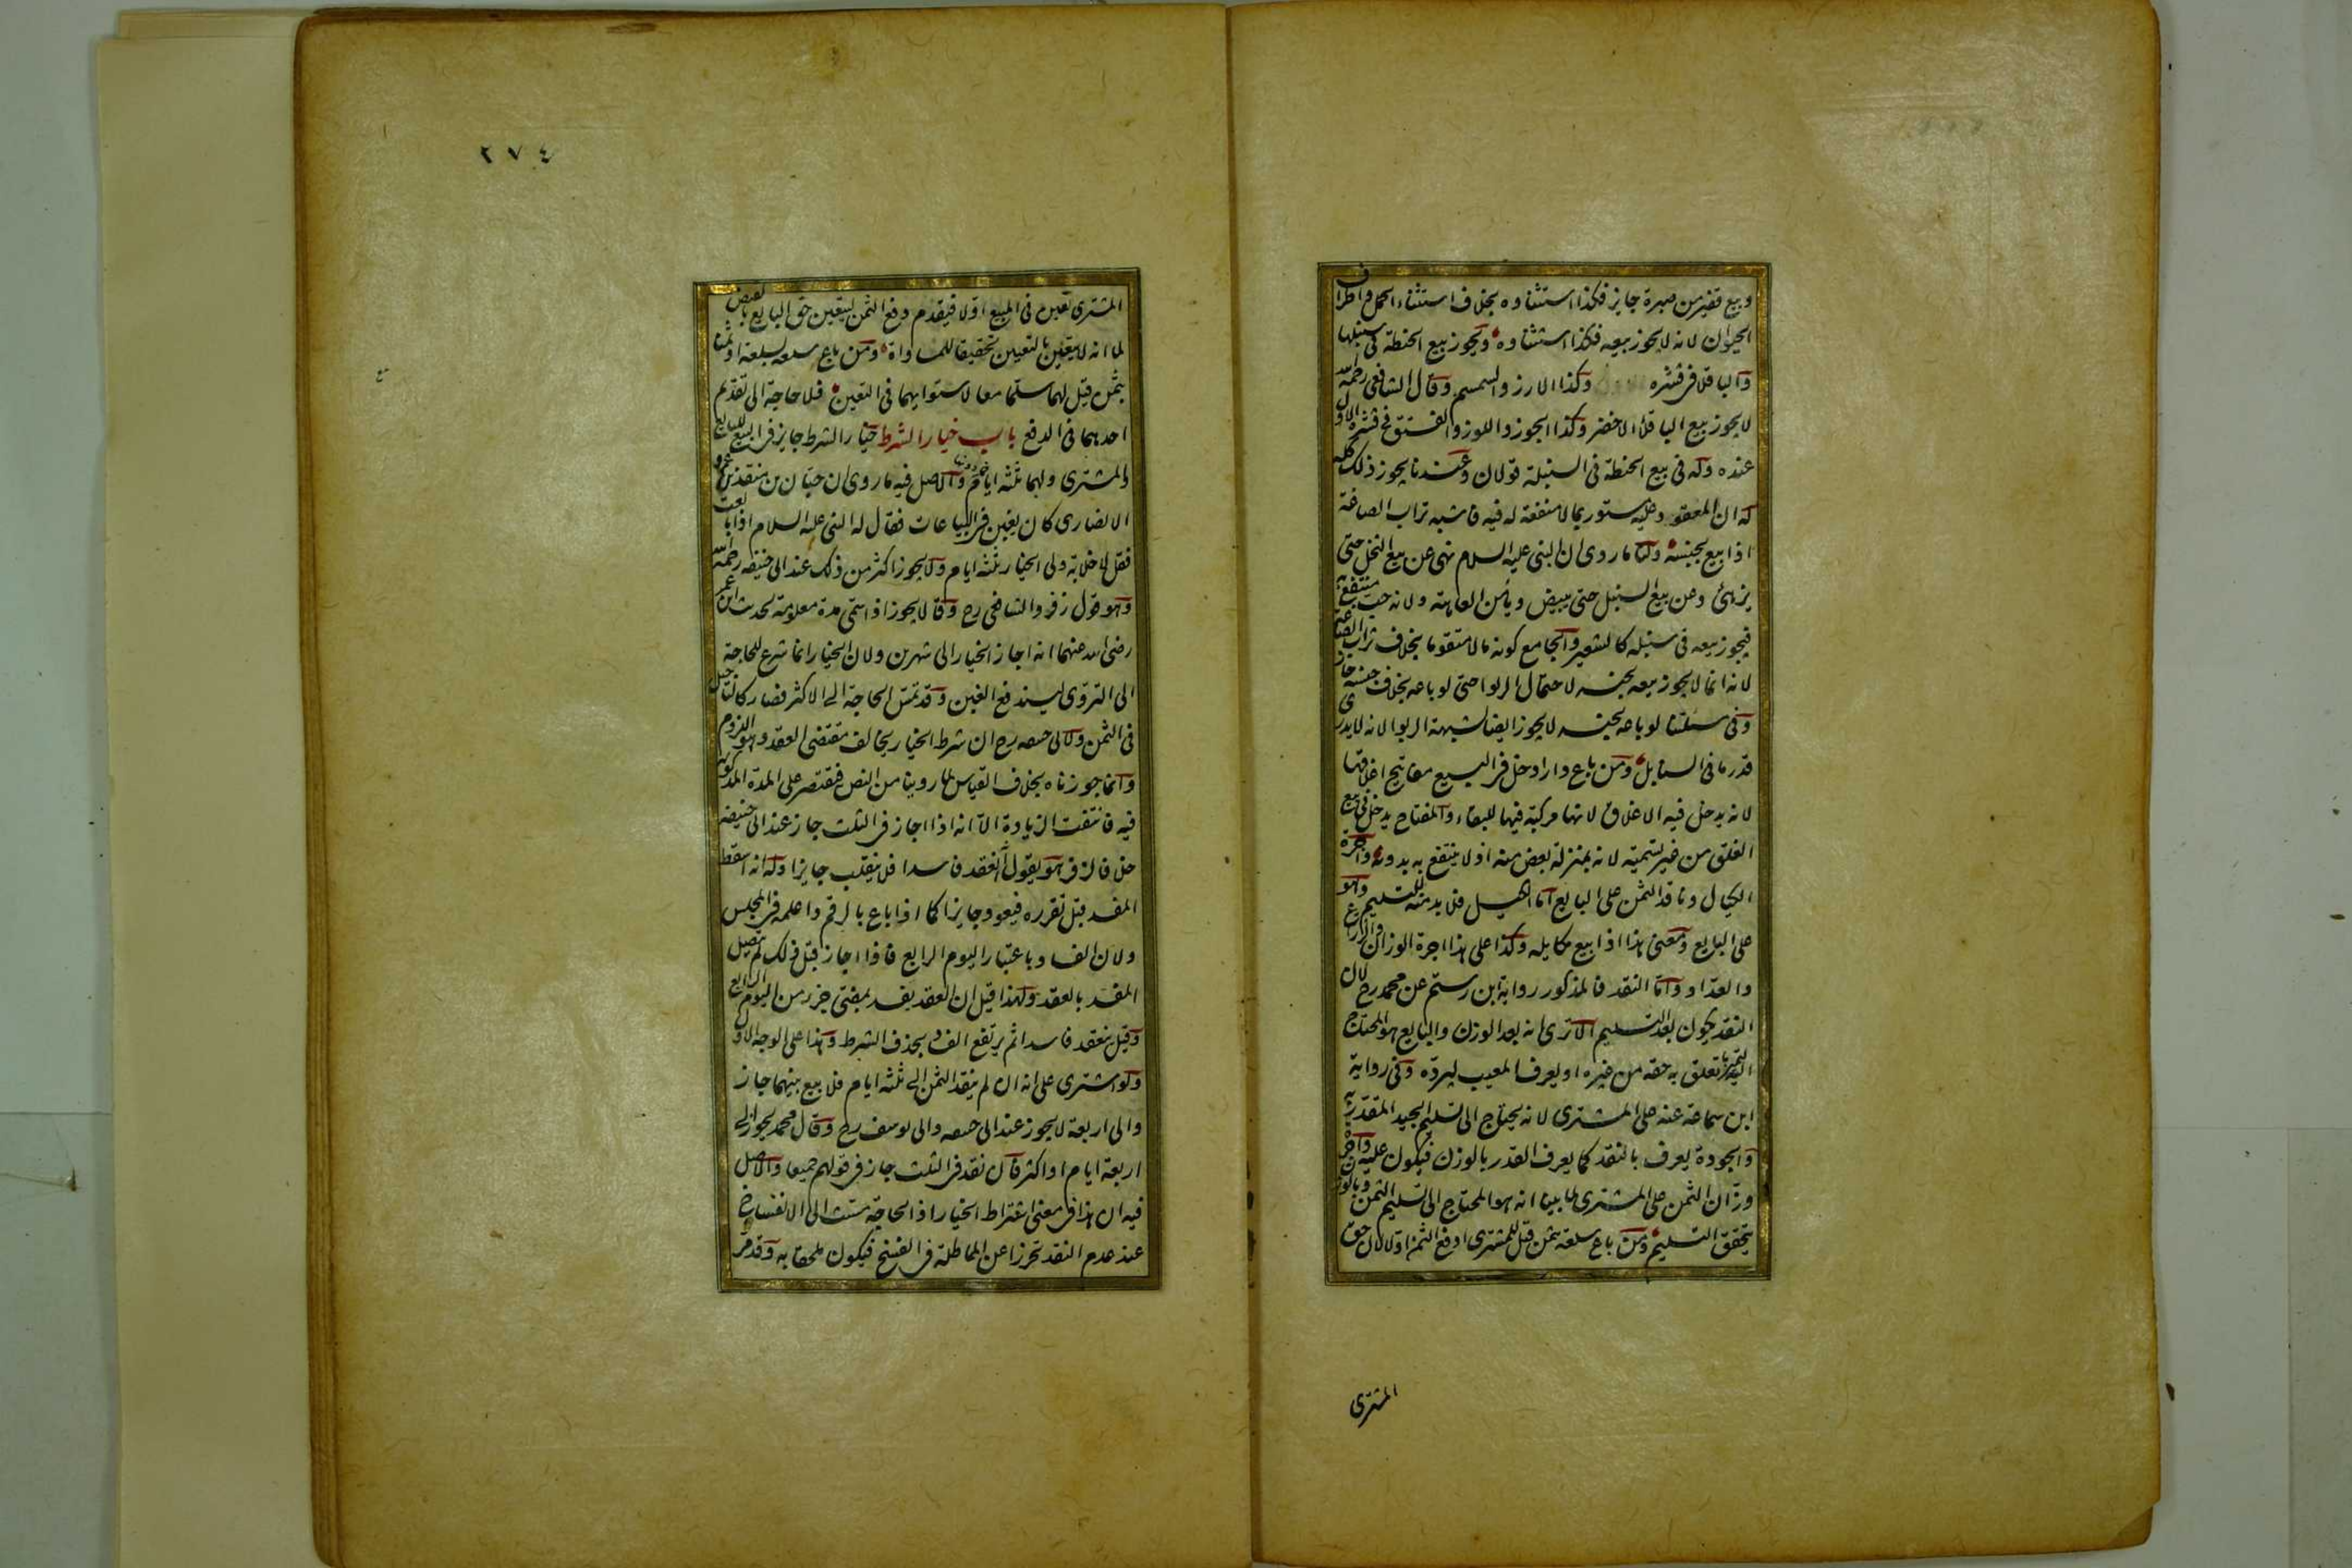 وبيع قفيز من صبرة جايز فكذا استثناوه بخلاف استثناء الحمل واطراف
الحيوان لانه لا يجوز بيعه فكذا استثناوه ويجوز بيع الحنطة في سنبلها
والباقلا في قشره وكذا الارز والسمسم وقال الشافعي رحمه الله
لا يجوز بيع الباقلا الاخضر وكذا الجوز واللوز والفستق في قشره الاول
عنده وله في بيع الحنطة في السنبلة قولان وعندنا يجوز ذلك كله
له ان المعقود عليه مستور بما لا منفعة له فيه فاشبه تراب الصاغة
اذا بيع بجنسه ولنا ما روى ان النبي عليه السلام نهى عن بيع النخل حتى
يزهى وعن بيع السنبل حتى يبيض ويأمن العاهة ولانه حب منتفع به
فيجوز بيعه في سنبله كالشعير والجامع كونه مالا متقوما بخلاف تراب الصاغة
لانه انما لا يجوز بيعه بجنسه لاحتمال الربوا حتى لو باعه بخلاف جنسه جاز
وفي مسئلتنا لو باعه بجنسه لا يجوز ايضا لشبهة الربوا لانه لا يدرى
قدر ما في السنابل ومن باع دارا دخل في البيع مفاتيح اغلاقها
لانه يدخل فيه الاغلاق لانها مركبة فيها للبقاء والمفتاح يدخل في بيع
الغلق من غير تسمية لانه بمنزلة بعض منه اذ لا ينتفع به بدونه واجرة
الكيال وناقد الثمن على البايع اما الكيل فلا بد منه للتسليم وهو
على البايع ومعنى هذا اذا بيع مكايلة وكذا على هذا اجرة الوزان والزراع
والعداد واما النقد فالمذكور رواية ابن رستم عن محمد رح لان
النقد يكون بعد التسليم الا ترى انه بعد الوزن والبايع هو المحتاج
اليه ليميز ما تعلق به حقه من غيره او يعرف المعيب ليرده وفي رواية
ابن سماعة عنه على المشترى لانه يحتاج الى تسليم الجيد المقدر به
والجودة يعرف بالنقد كما يعرف القدر بالوزن فيكون عليه واجرة
وزان الثمن على المشترى لما بينا انه هو المحتاج الى تسليم الثمن وبالوزن
يتحقق التسليم ومن باع سلعة بثمن قيل للمشترى ادفع الثمن اولا لان حق
المشترى
٢٧٤
المشترى تعين في المبيع اولا فيقدم دفع الثمن ليتعين حق البايع بالقبض
لما انه لا يتعين بالتعيين تحقيقا للمساواة ومن باع سلعة بسلعة او ثمنا
بثمن قيل لهما سلما معا لاستوايهما في التعين فلا حاجة الى تقديم
احدهما في الدفع باب خيار الشرط خيار الشرط جايز في البيع للبايع
والمشترى ولهما ثلثه ايام فما دونها والاصل فيه ما روى ان حبان بن منقذ بن عمرو
الانصارى كان يغبن في البياعات فقال له النبي عليه السلام اذا بايعت
فقل لا خلابة ولى الخيار ثلثه ايام ولا يجوز اكثر من ذلك عند ابى حنيفه رحمه الله
وهو قول زفر والشافعي رح وقالا يجوز اذا سمى مدة معلومة لحديث ابن عمر
رضى الله عنهما انه اجاز الخيار الى شهرين ولان الخيار انما شرع للحاجة
الى التروى ليندفع الغبن وقد تمس الحاجة الى الاكثر فصار كالتاجيل
في الثمن ولابى حنيفه رح ان شرط الخيار يخالف مقتضى العقد وهو اللزوم
وانما جوزناه بخلاف القياس لما روينا من النص فيقتصر على المدة المذكورة
فيه فانتفت الزيادة الا انه اذا اجاز في الثلث جاز عند ابى حنيفه
خلافا لزفر هو يقول انعقد فاسدا فلا ينقلب جايزا وله انه اسقط
المفسد قبل تقرره فيعود جايزا كما اذا باع بالرقم واعلمه في المجلس
ولان الفساد باعتبار اليوم الرابع فاذا اجاز قبل ذلك لم يتصل
المفسد بالعقد ولهذا قيل ان العقد يفسد بمضى جزء من اليوم الرابع
وقيل ينعقد فاسدا ثم يرتفع الفساد بحذف الشرط وهذا على الوجه الاول
ولو اشترى على انه ان لم ينقد الثمن الى ثلثه ايام فلا بيع بينهما جاز
والى اربعة لا يجوز عند ابى حنيفه وابى يوسف رح وقال محمد يجوز الى
اربعة ايام او اكثر فان نقد في الثلث جاز في قولهم جميعا والاصل
فيه ان هذا في معنى اشتراط الخيار اذ الحاجة مست الى الانفساخ
عند عدم النقد تحرزا عن المماطلة في الفسخ فيكون ملحقا به وقد مر